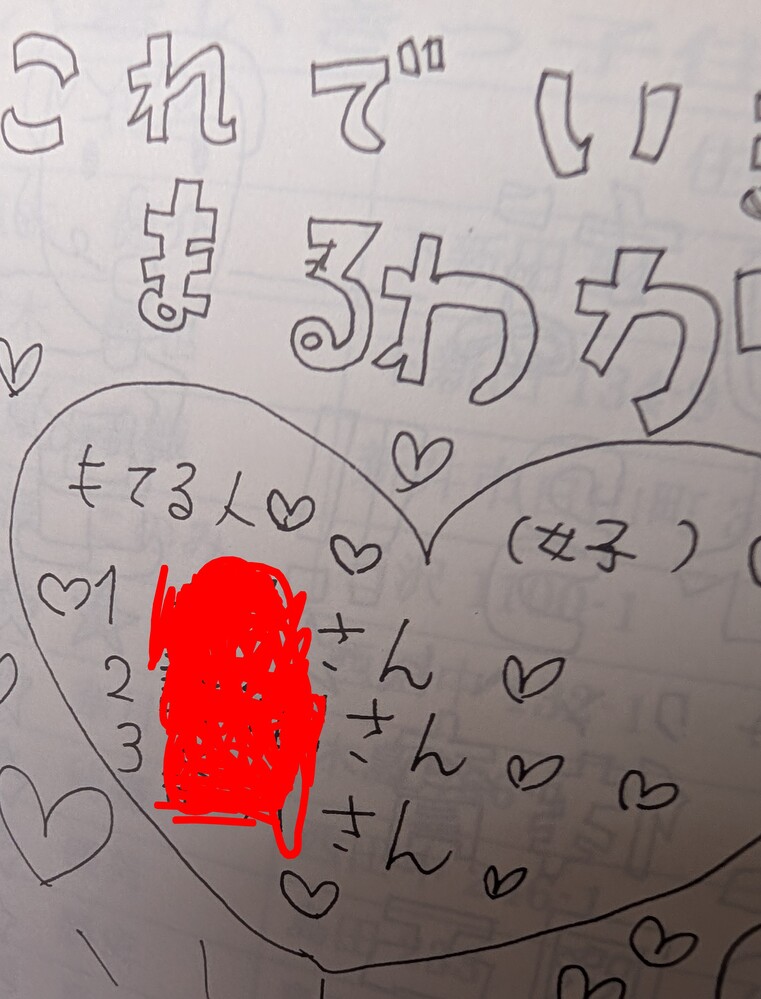 これでい
まるわか
もてる人
(女子)
1 さん
2 さん
3 さん